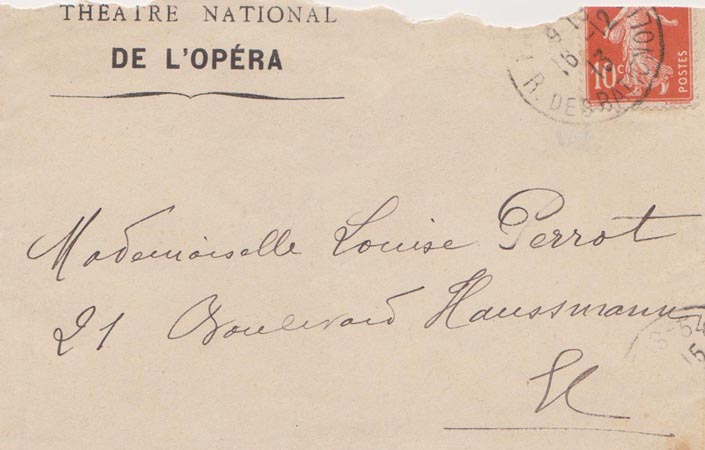 THÉATRE NATIONAL
DE L'OPÉRA
16 -12
13
R. DES BA
10c
POSTES
Mademoiselle Louise Perrot
21 Boulevard Haussmann